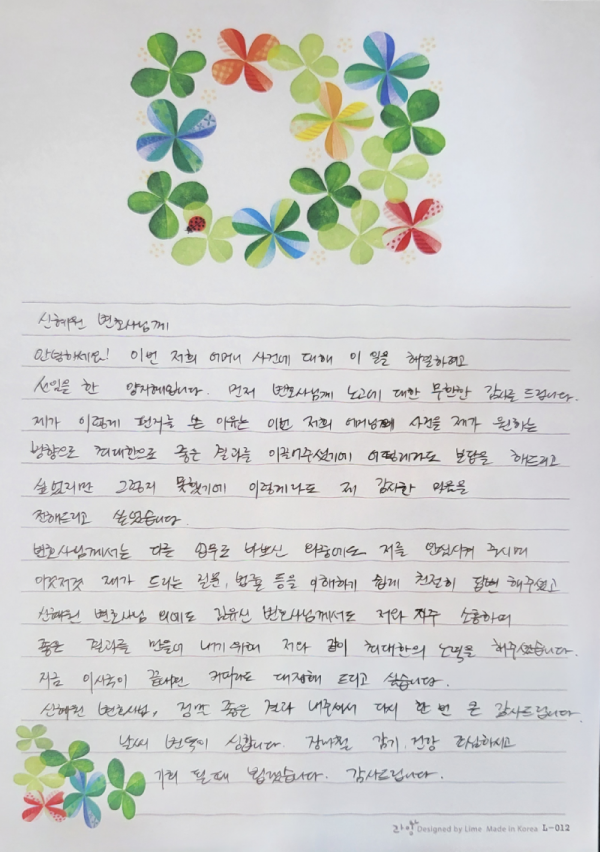 신혜원 변호사님께
안녕하세요! 이번 저희 어머니 사건에 대해 이 일을 해결하려고
선임을 한 양지혜입니다. 먼저 변호사님께 노고에 대한 무한한 감사를 드립니다.
제가 이렇게 편지를 쓴 이유는 이번 저희 어머님의 사건을 제가 원하는
방향으로 최대한으로 좋은 결과를 이끌어주셨기에 어떻게라도 보답을 해드리고
싶었지만 그렇지 못했기에 이렇게나도 제 감사한 마음을
전해드리고 싶었습니다.
변호사님께서는 다른 업무로 바쁘신 와중에도 저를 안심시켜 주시며
이것저것 제가 드리는 질문, 법률 등을 이해하기 쉽게 친절히 답변 해주셨고
신혜원 변호사님 외에도 김유신 변호사님께서도 저와 자주 소통하며
좋은 결과를 만들어 내기 위해 저와 같이 최대한의 노력을 해주셨습니다.
지금 이 시국이 끝나면 커피라도 대접해 드리고 싶습니다.
신혜원 변호사님, 정말 좋은 결과 내주셔서 다시 한 번 큰 감사드립니다.
날씨 변덕이 심합니다. 환절기 감기, 건강 조심하시고
기회 될 때 뵙겠습니다. 감사드립니다.
라임 Designed by Lime Made in Korea L-012